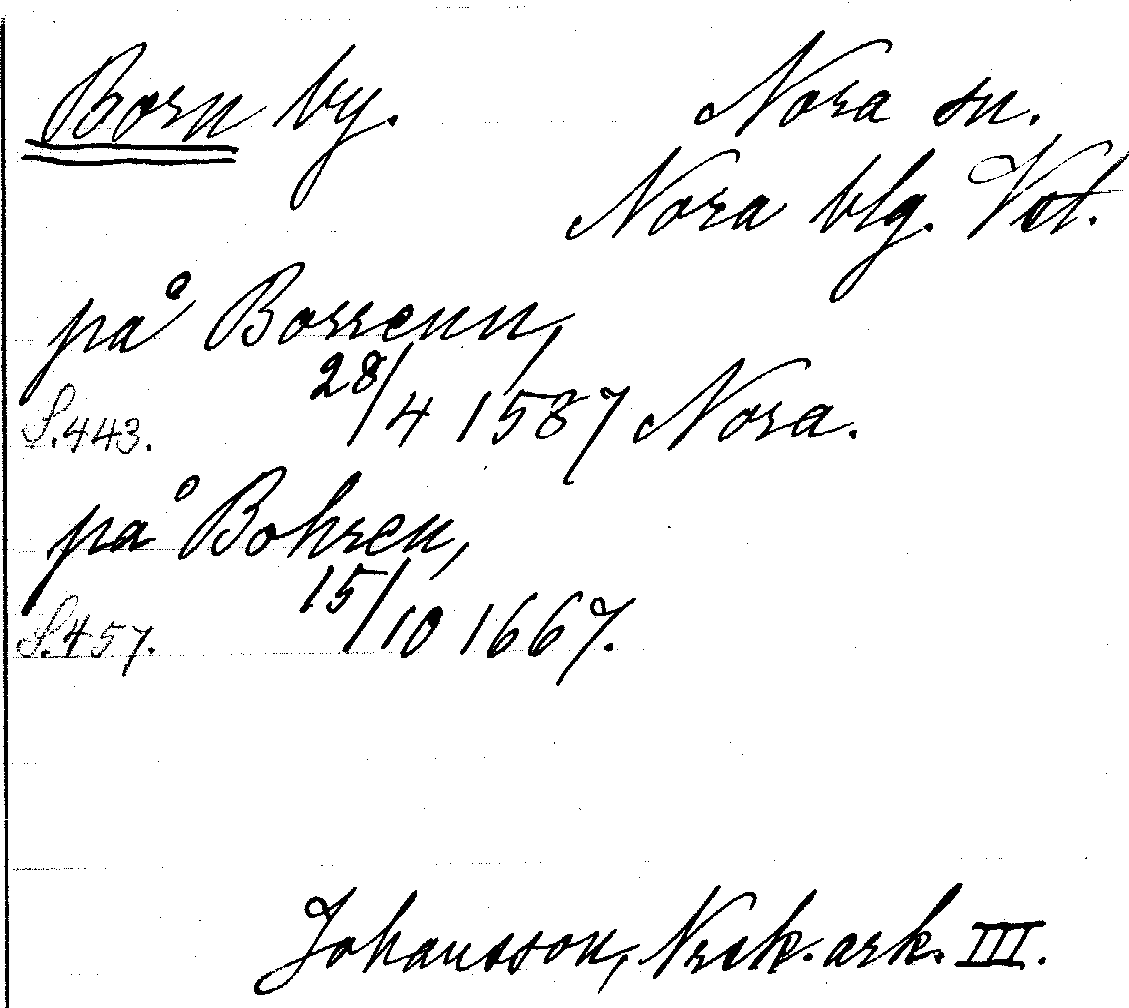 Born by. Nora sn.
Nora blg. Vst.
på Borrenn,
S.443. 28/4 1587 Nora.
på Bohren,
S.457. 15/10 1667.
Johansson, Nrsk. ark. III.